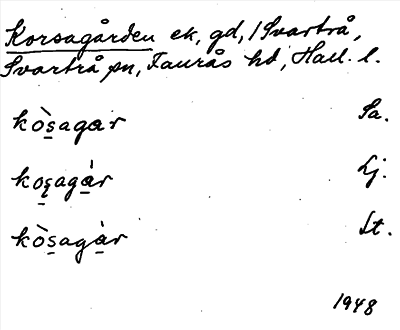 Korsagården ek, gd, / Svartrå,
Svartrå sn, Faurås hd, Hall. l.
kòs̲agar Sa.
kos̨̲agà̲r Lj.
kòs̲agà̲r St.
1948